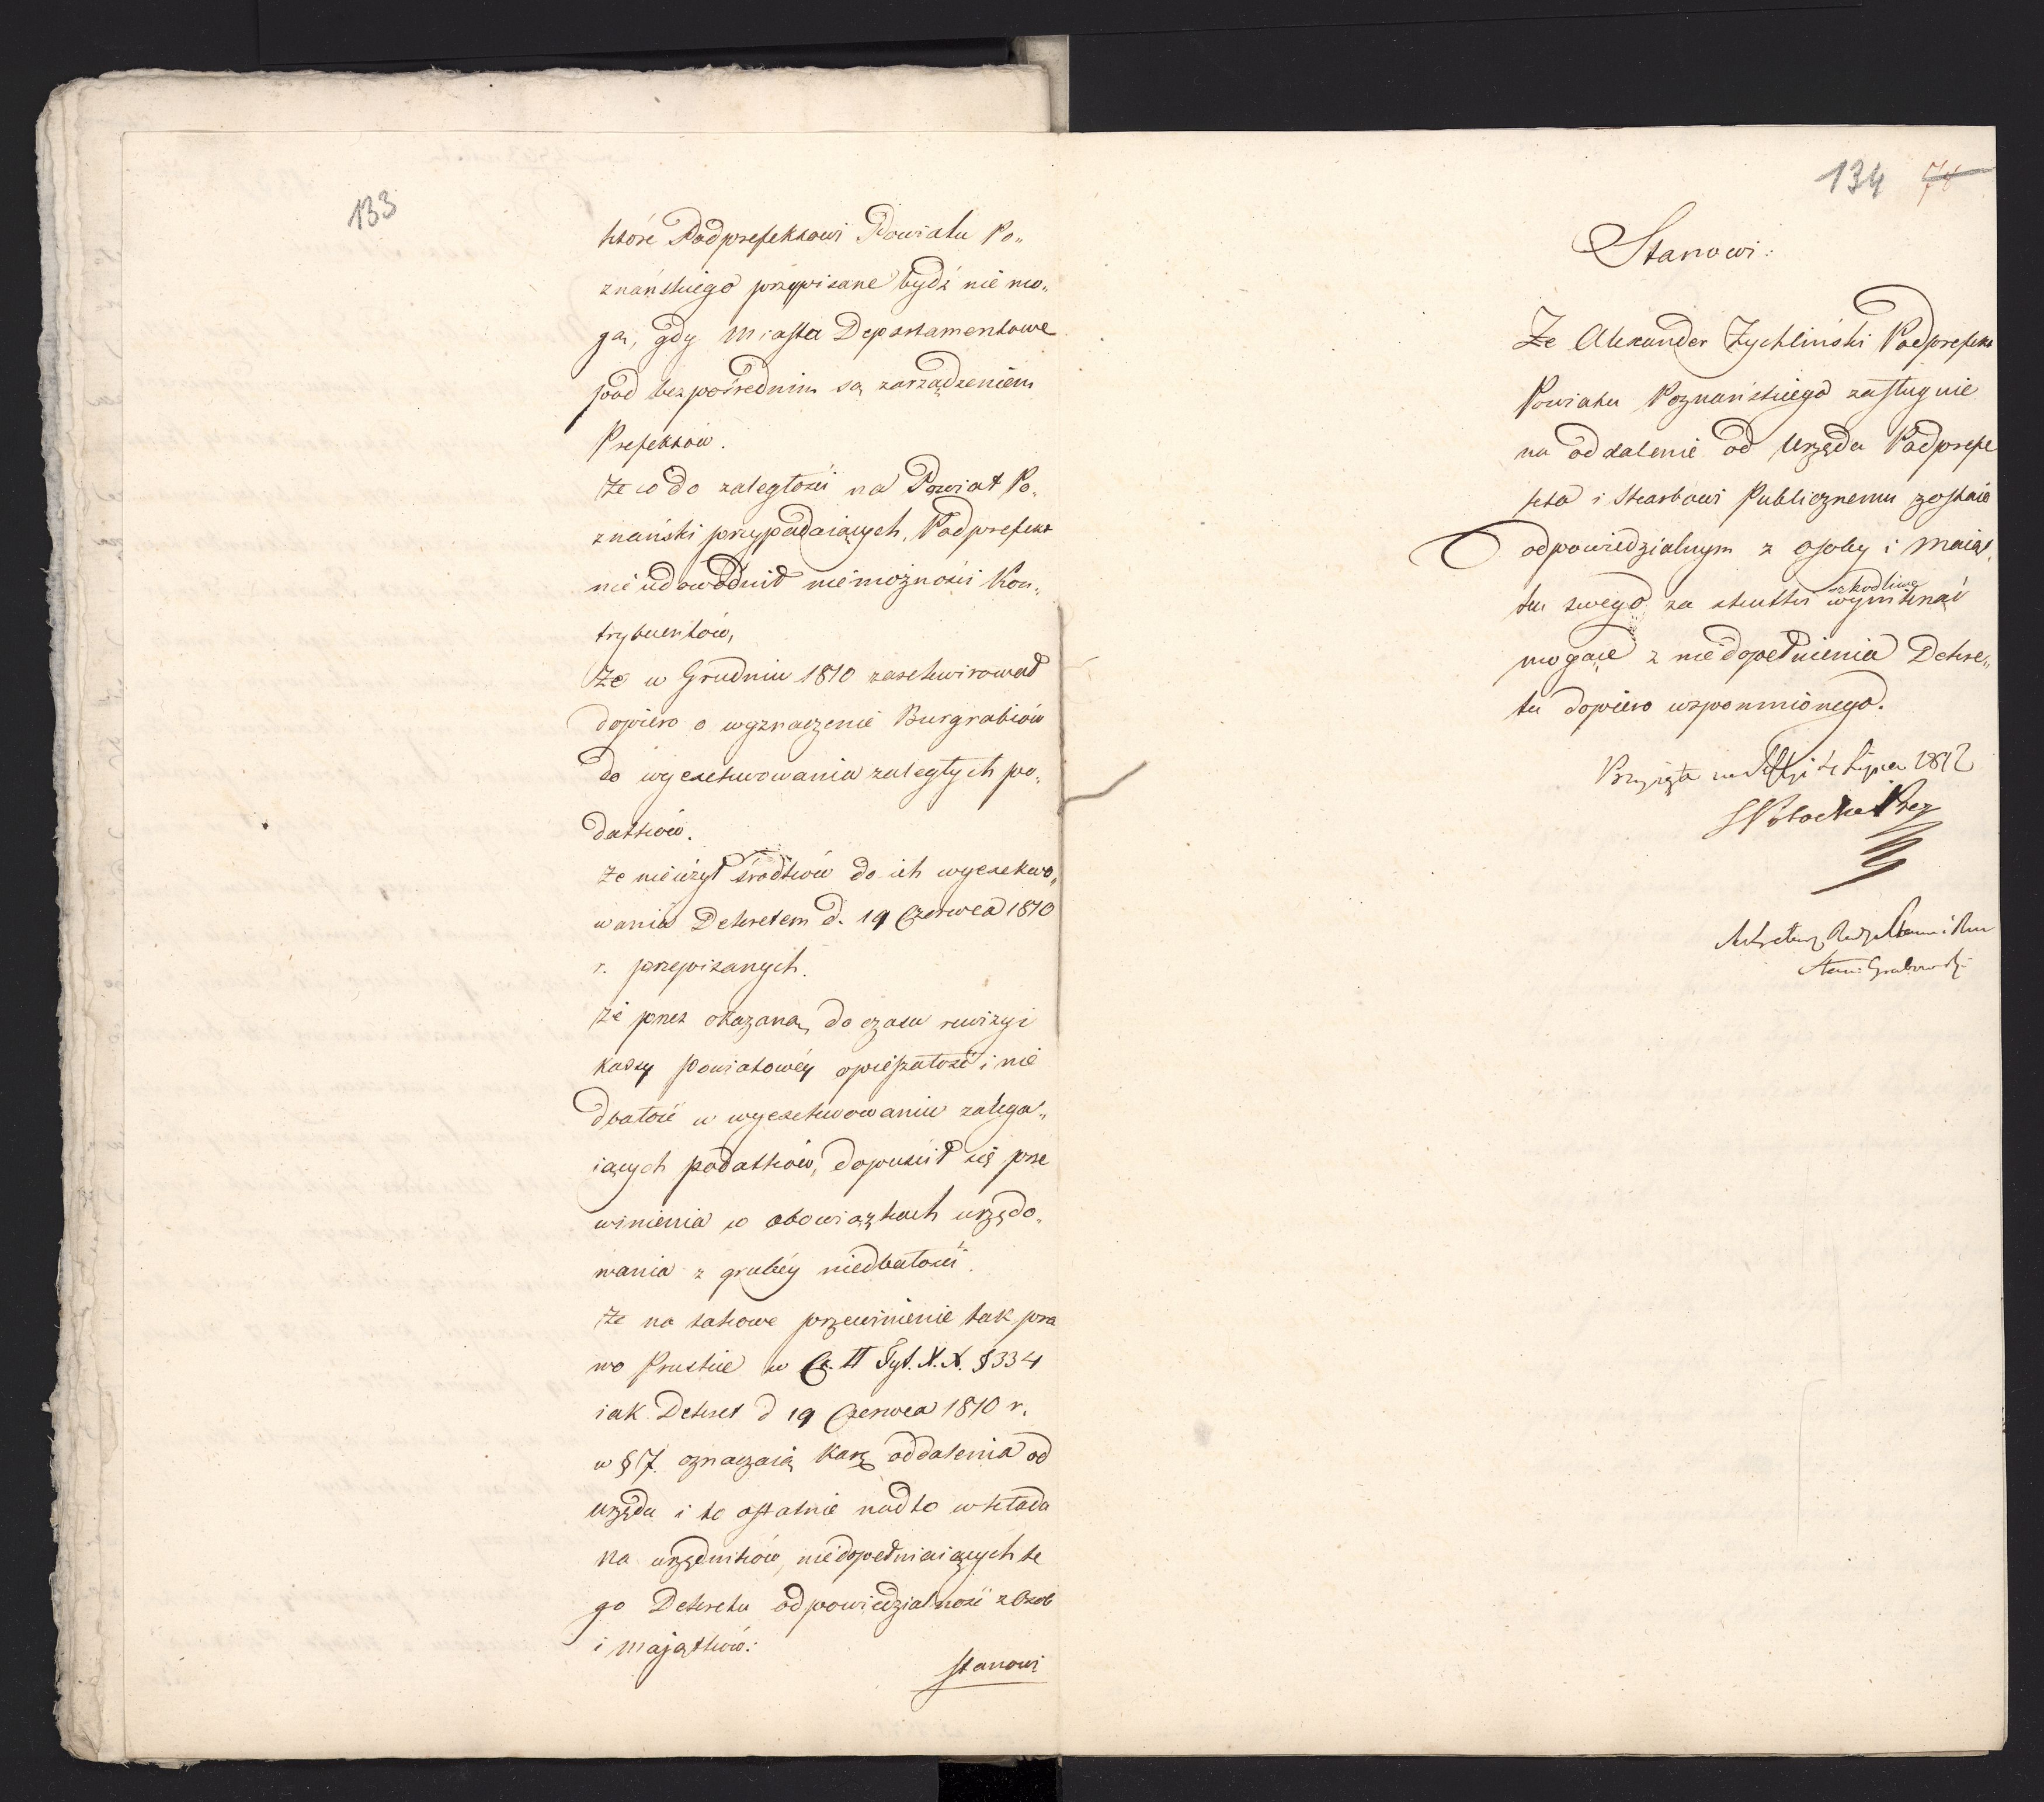 133
które Podprefektowi Powiatu Po„
znańskiego przypisane bydź nie mo„
gą, gdy Miasta Departamentowe
pod bezpośrednim są zarządzeniem
Prefektów.
Że co do zaległości na Powiat Po„
znański przypadaiących, Podprefekt
nie udowodnił niemożności Kon„
trybuentów,
Że w Grudniu 1810 zarekwirował
dopiero o wyznaczenie Burgrabiów
do wyexekwowania zaległych po„
datków.
Że nie użył środków do ich wyexekwo„
wania Dekretem d. 19 Czerwca 1810
r. przepisanych.
Że przez okazaną do czasu rewizyi
kassy Powiatowéy opieszałość i nie
dbałość w wyexekwowaniu zalega„
iących podatków, dopuścił się prze
winienia w obowiązkach urzędo„
wania z grubéy niedbałości.
Że na takowe przewinienie tak pra
wo Pruskie w Cz. II Tyt. X.X. § 334
iak Dekret d 19 Czerwca 1810 r.
w § 7. oznaczaią karę oddalenia od
urzędu i to ostatnie nadto wkłada
na urzędników, niedopełniaiących te
go Dekretu odpowiedzialność z Osob
i majątków:
stanowi
134 74
Stanowi:
Że Alexander Żychliński Podprefekt
Powiatu Poznańskiego zasługuie
na oddalenie od Urzędu Podprefe
kta i Skarbowi Publicznemu zostaie
odpowiedzialnym z osoby i maiąt„
ku swego za skutki szkodliwe wyniknąć
mogące z niedopełnienia Dekre„
tu dopiero wspomnionego.
Przyięta na Sessyi 4 Lipca 1812
S Potocki Prez
Sekretarz Rady Stanu i
Stan: Grabowski